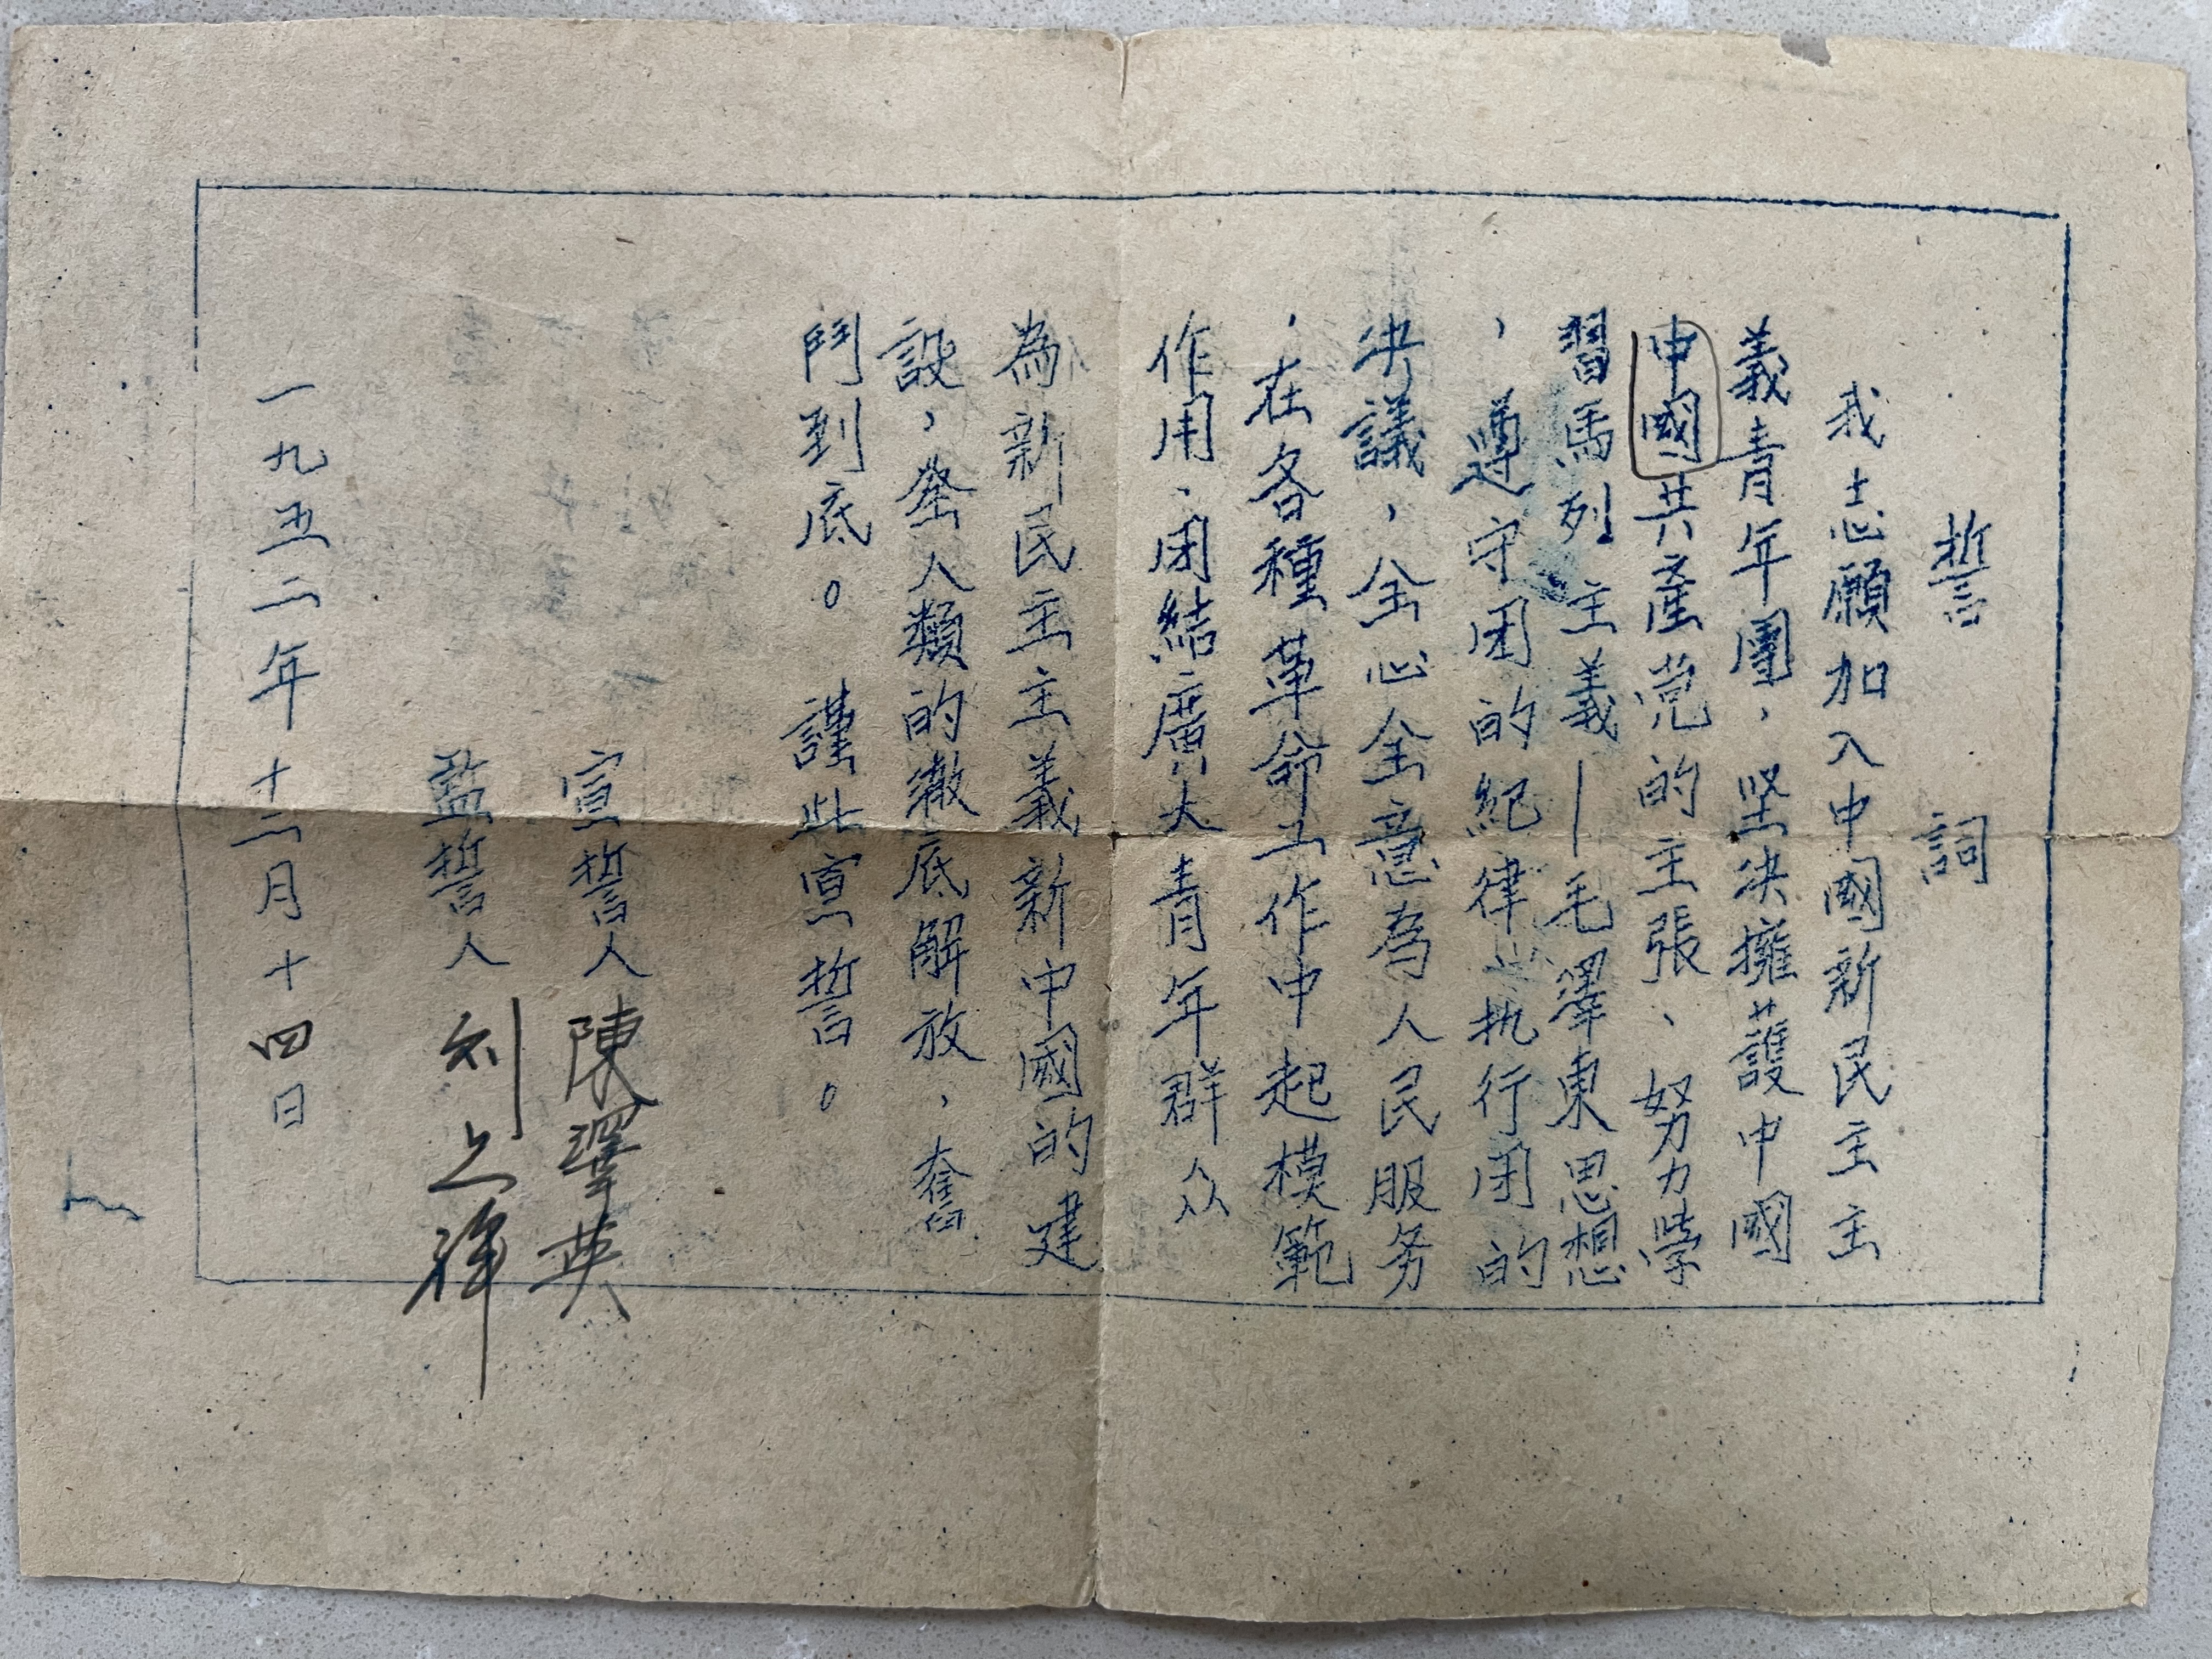 誓詞
我志願加入中國新民主主
義青年團，堅决擁護中國
中國共產党的主張、努力學
習馬列主義—毛澤東思想
，遵守团的紀律，执行团的
决議，全心全意為人民服务
，在各種革命工作中起模範
作用，团結廣大青年群众
為新民主主義新中國的建
設，全人類的徹底解放，奮
鬥到底。 謹此宣誓。
宣誓人 陳澤英
監誓人 刘之
一九五二年十二月十四日